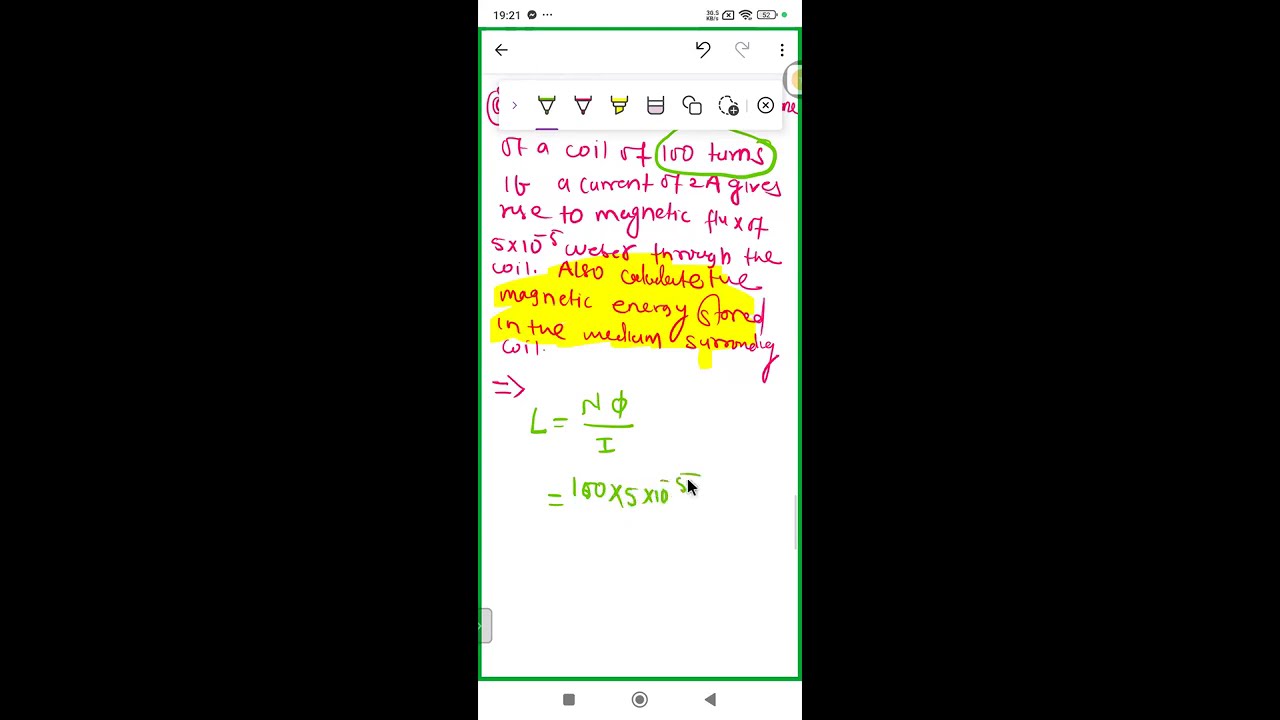 19:21
30.5 KB/s
52
of a coil of 100 turns
If a current of 2A gives
rise to magnetic flux of
5×10⁻⁵ weber through the
coil. Also calculate the
magnetic energy stored
in the medium surronding
coil.
=>
L = NΦ / I
= 100×5×10⁻⁵